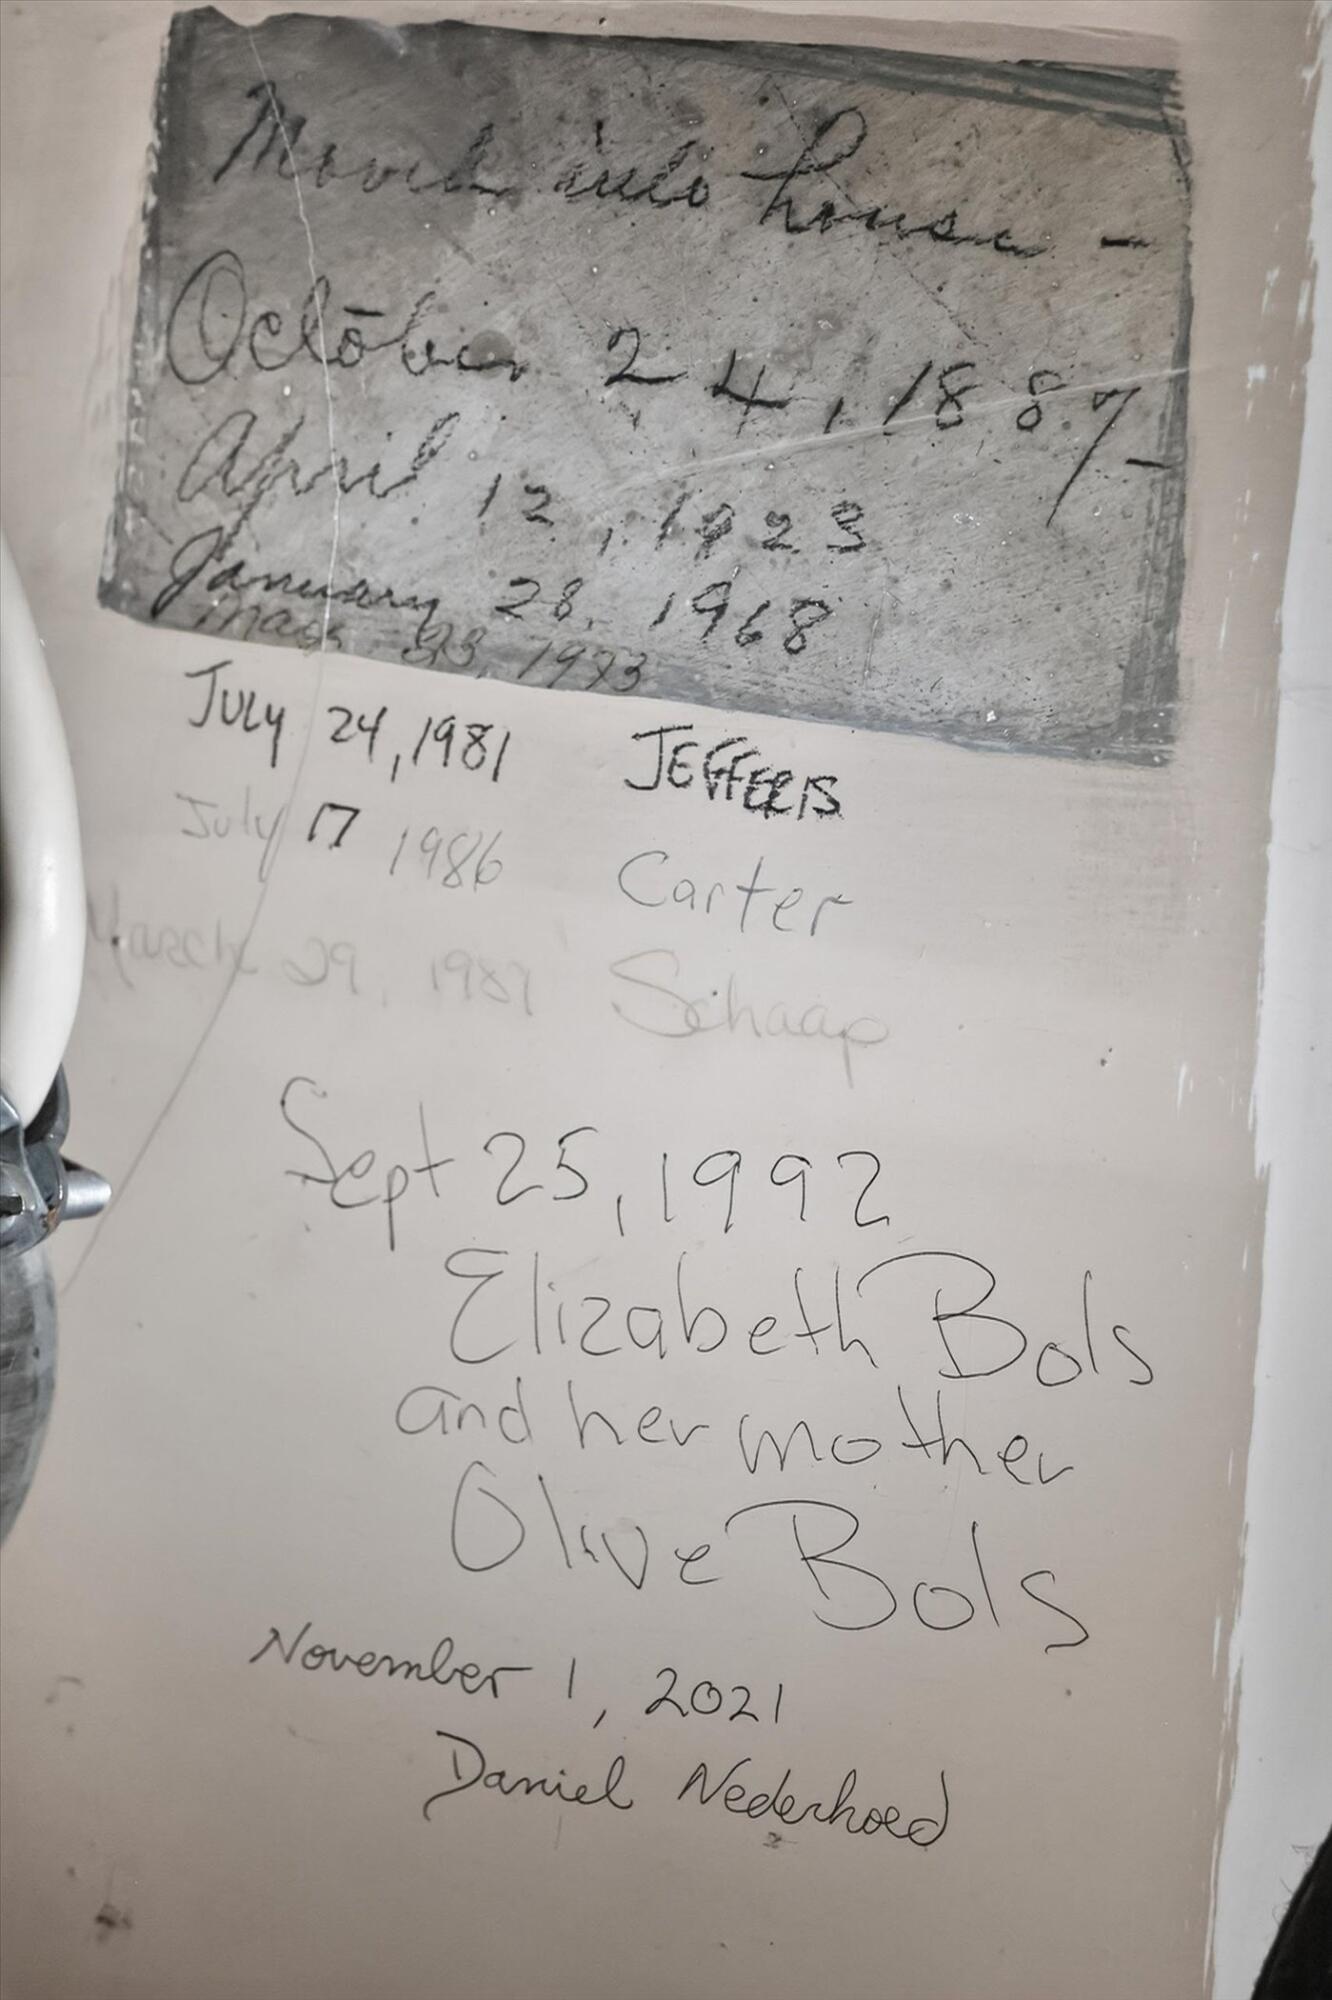 Moved into house -
October 24, 1887 -
April 12, 1923
January 28, 1968
23, 1973
JULY 24, 1981 JEFFERIS
July 17 1986 Carter
March 29, 1989 Schaap
Sept 25, 1992
Elizabeth Bols
and her mother
Olive Bols
November 1, 2021
Daniel Nederhoed